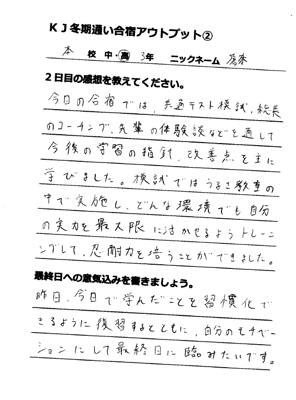 KJ冬期通い合宿アウトプット②
本 校 中・高 3年 ニックネーム
2日目の感想を教えてください。
今日の合宿では、共通テスト模試、総長
のコーチング、先輩の体験談などを通して
今後の学習の指針、改善点を主に
学びました。模試ではうるさい教室の
中で実施し、どんな環境でも自分
の実力を最大限に活かせるようトレーニ
ングして、忍耐力を培うことができました。
最終日への意気込みを書きましょう。
昨日、今日で学んだことを習慣化で
きるように復習するとともに、自分のモチベー
ションにして最終日に臨みたいです。